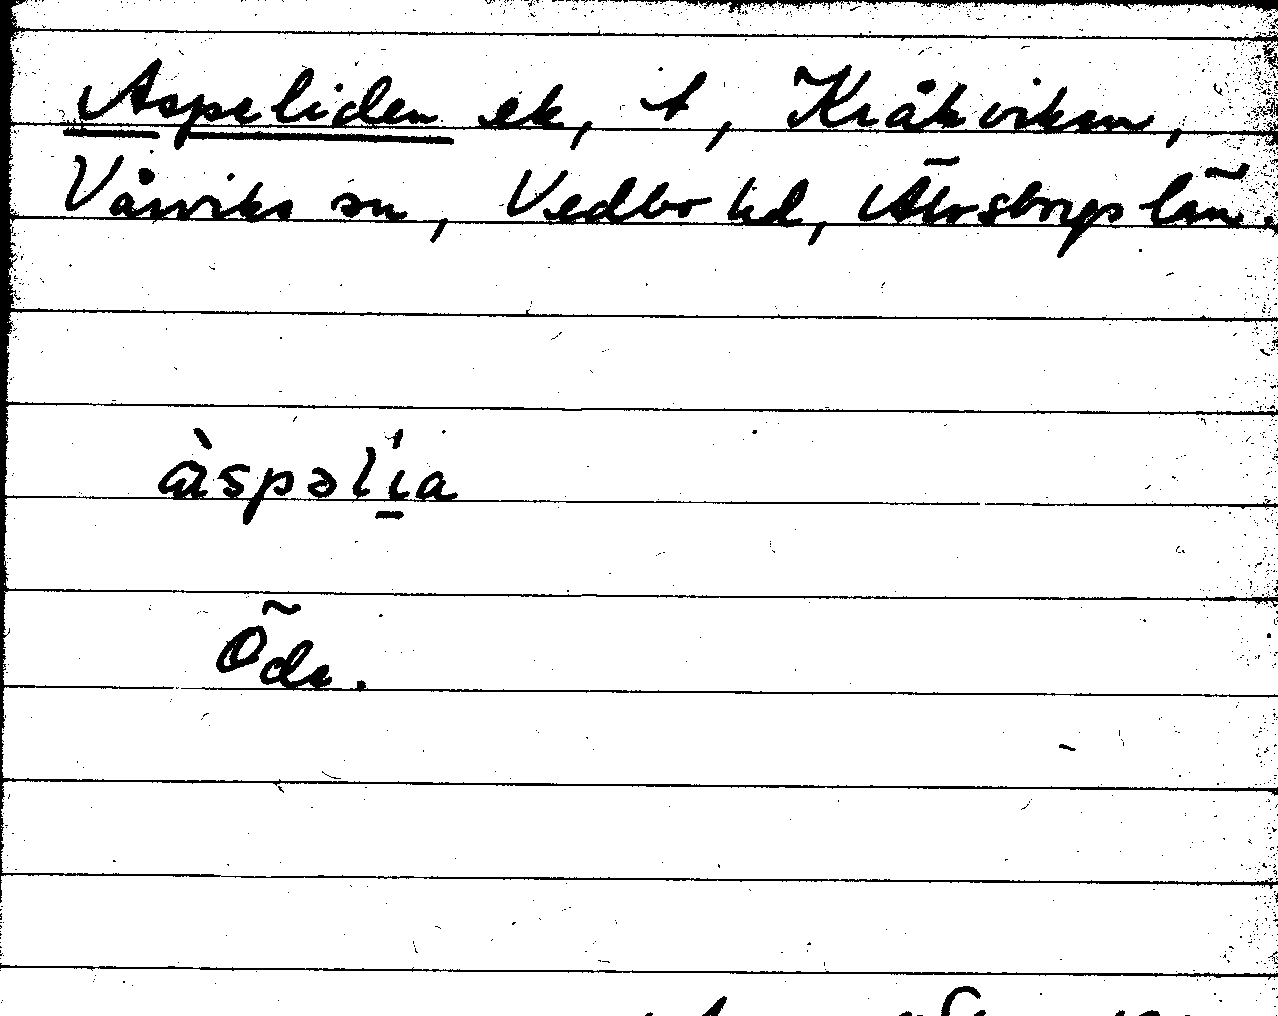 Aspeliden ek, t, Kråkviken,
Vårviks sn, Vedbo hd, Älvsborgs län.
àspəlı́a
Öde.